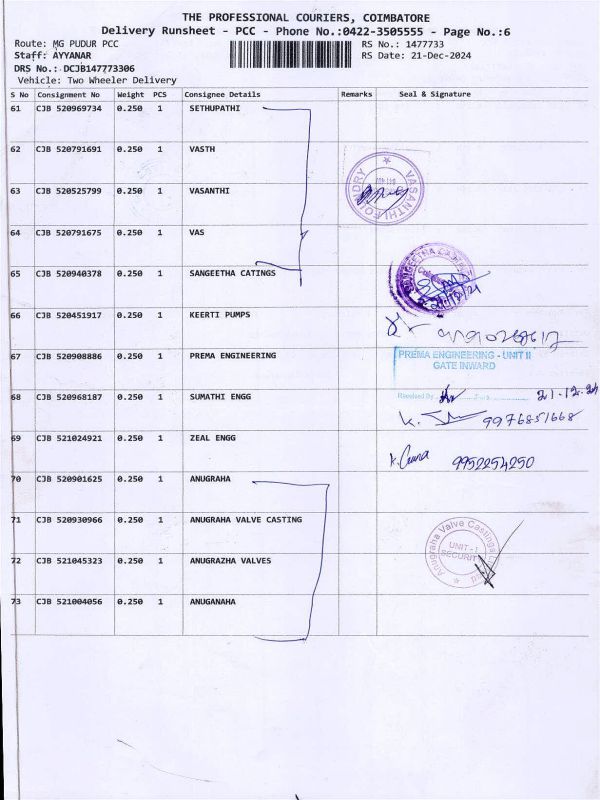 THE PROFESSIONAL COURIERS, COIMBATORE
Delivery Runsheet - PCC - Phone No.:0422-3505555 - Page No.:6
Route: MG PUDUR PCC RS No.: 1477733
Staff: AYYANAR RS Date: 21-Dec-2024
DRS No.: DCJB147773306
Vehicle: Two Wheeler Delivery
S No Consignment No Weight PCS Consignee Details Remarks Seal & Signature
61 CJB 520969734 0.250 1 SETHUPATHI
62 CJB 520791691 0.250 1 VASTH
63 CJB 520525799 0.250 1 VASANTHI
VASANTHI FOUNDRY
64 CJB 520791675 0.250 1 VAS
65 CJB 520940378 0.250 1 SANGEETHA CATINGS
66 CJB 520451917 0.250 1 KEERTI PUMPS
67 CJB 520908886 0.250 1 PREMA ENGINEERING
PREMA ENGINEERING - UNIT II
GATE INWARD
68 CJB 520968187 0.250 1 SUMATHI ENGG
Received By 21.12.24
9976851668
69 CJB 521024921 0.250 1 ZEAL ENGG
9952254250
70 CJB 520901625 0.250 1 ANUGRAHA
71 CJB 520930966 0.250 1 ANUGRAHA VALVE CASTING
Anugraha Valve Castings
UNIT - I
SECURITY
72 CJB 521045323 0.250 1 ANUGRAZHA VALVES
73 CJB 521004056 0.250 1 ANUGANAHA